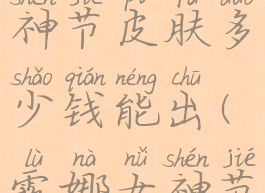 神节皮肤多
shǎo qián néng chū
少钱能出(
lù nà nǚ shén jié
露娜女神节